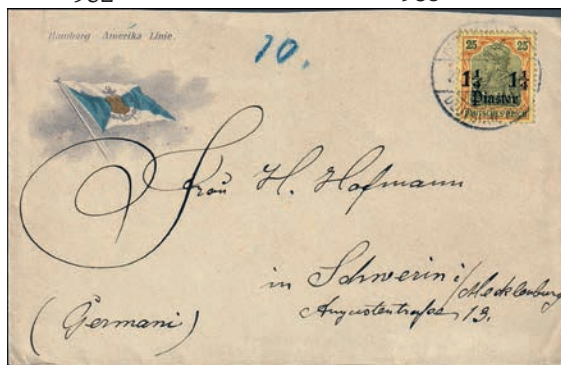 Hamburg - Amerika Linie.
10.
25 25
1¼ 1¼
Piaster
Frau H. Hofmann
in Schwerin i/Mecklenburg
Augustenstraße 13.
(Germani)